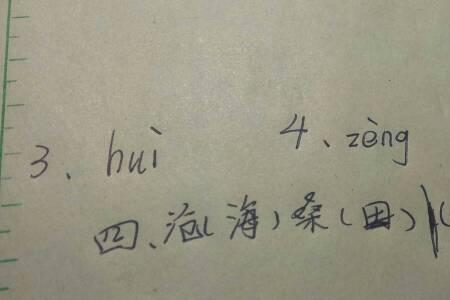 3、huì 4、zèng
四、沧(海)桑(田)